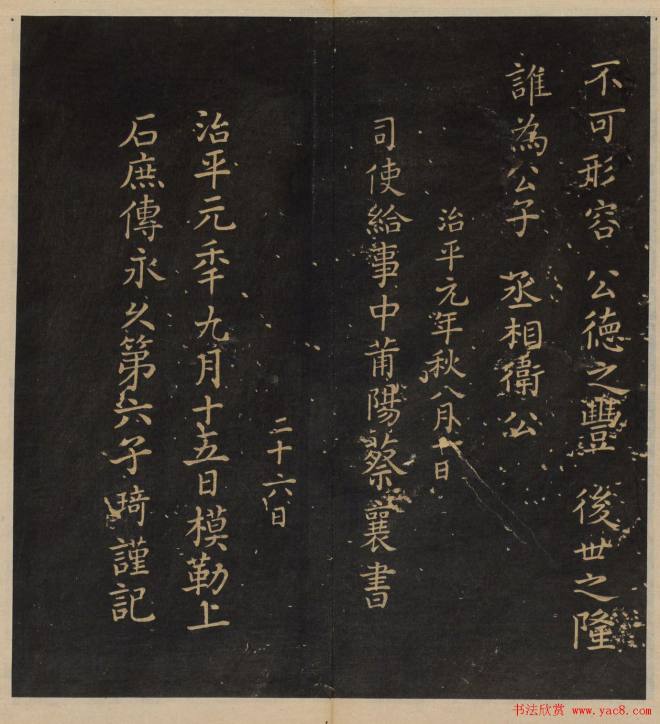 不可形容公德之豐後世之隆
誰為公子丞相衛公
治平元年秋八月十日
司使給事中莆陽蔡襄書
二十六日
治平元秊九月十五日模勒上
石庶傳永久第六子琦謹記
书法欣赏 www.yac8.com